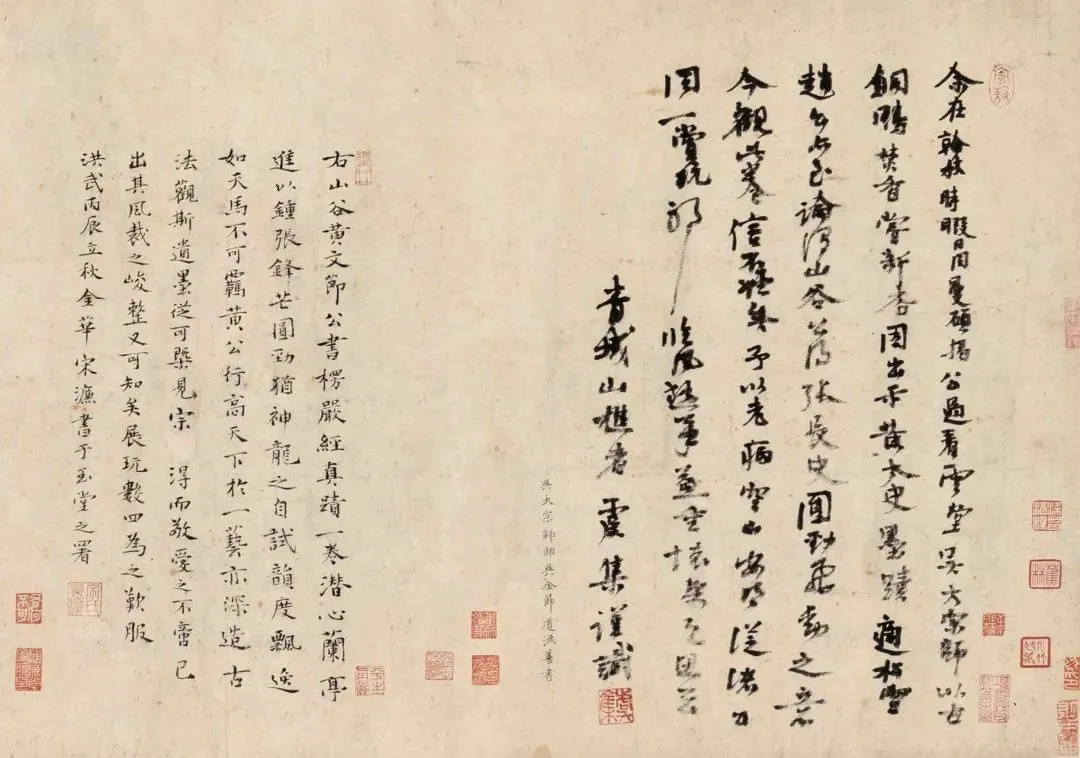 余在翰林時暇日同曼碩揭公過看雲堂吳大宗師以古
銅鴨焚香嘗新杏因出示黃太史墨蹟適松雪
趙公亦至論海山谷公為張長史圓勁飛動之意
今觀此卷信無矣予以老病空山安得從諸公
同一賞玩邪臨風執筆益重懷賢之思云
青城山樵者虞集謹識
吳大宗師即吳全節道流善者
右山谷黃文節公書楞嚴經真蹟一卷潛心蘭亭
進以鍾張鋒芒圓勁猶神龍之自試韻度飄逸
如天馬不可羈黃公行高天下於一藝亦深造古
法觀斯遺墨從可槩見宗得而敬愛之不啻已
出其風裁之峻整又可知矣展玩數四為之歎服
洪武丙辰立秋金華宋濂書于玉堂之署